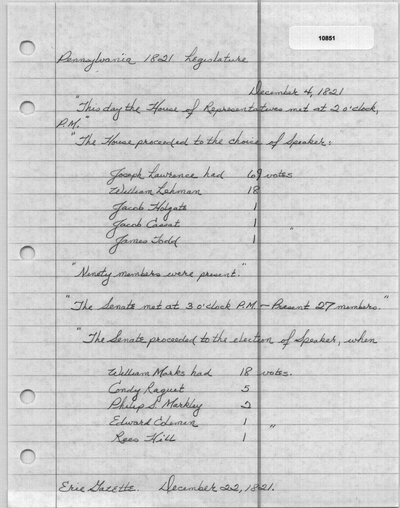 10851
Pennsylvania 1821 Legislature
December 4, 1821
"This day the House of Representatives met at 2 o'clock,
P.M."
"The House proceeded to the choice of Speaker:
Joseph Lawrence had 69 votes
William Lehman 18
Jacob Holgate 1
Jacob Cassat 1 "
James Todd 1
"Ninety members were present."
"The Senate met at 3 o'clock P.M. – Present 27 members."
"The Senate proceeded to the election of Speaker, when
William Marks had 18 votes.
Condy Raguet 5
Philip S. Markley 2
Edward Coleman 1 "
Rees Hill 1
Erie Gazette. December 22, 1821.